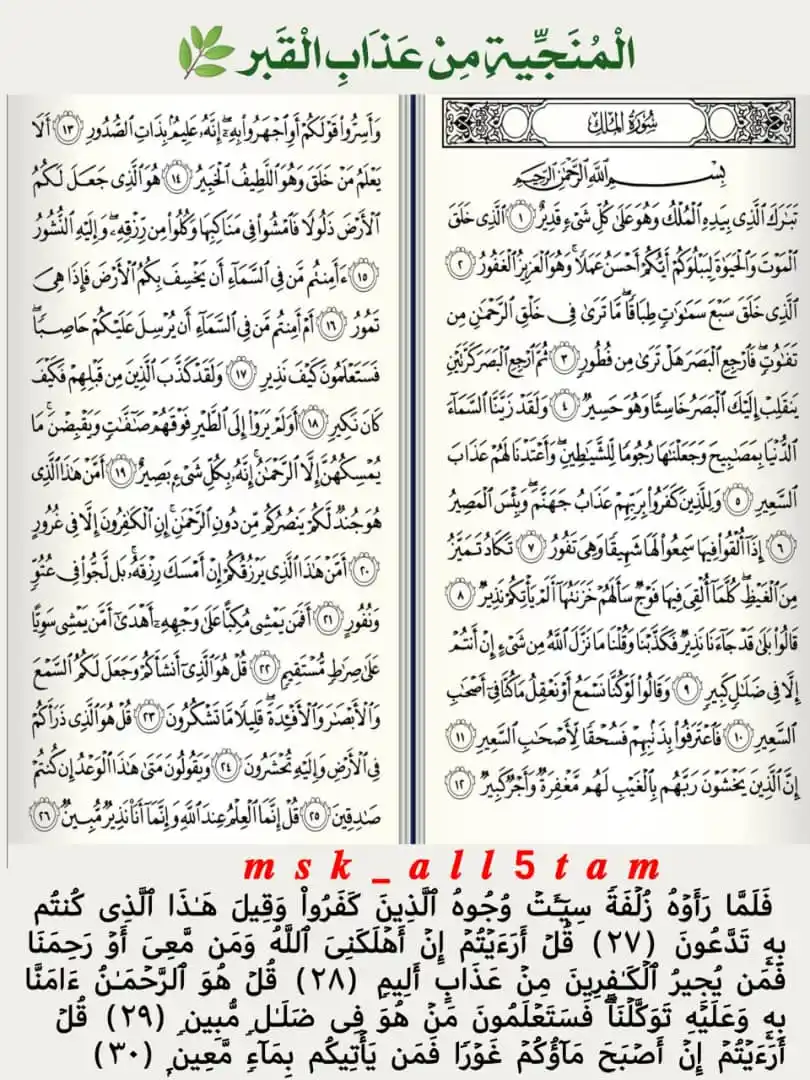 الْمُنَجِّيةِ مِنْ عَذَابِ الْقَبر
سُورَةُ المُلْكِ
بِسْمِ ٱللَّهِ ٱلرَّحْمَٰنِ ٱلرَّحِيمِ
تَبَٰرَكَ ٱلَّذِي بِيَدِهِ ٱلْمُلْكُ وَهُوَ عَلَىٰ كُلِّ شَيْءٖ قَدِيرٌ ١ ٱلَّذِي خَلَقَ
ٱلْمَوْتَ وَٱلْحَيَوٰةَ لِيَبْلُوَكُمْ أَيُّكُمْ أَحْسَنُ عَمَلٗاۚ وَهُوَ ٱلْعَزِيزُ ٱلْغَفُورُ ٢
ٱلَّذِي خَلَقَ سَبْعَ سَمَٰوَٰتٖ طِبَاقٗاۖ مَّا تَرَىٰ فِي خَلْقِ ٱلرَّحْمَٰنِ مِن
تَفَٰوُتٖۖ فَٱرْجِعِ ٱلْبَصَرَ هَلْ تَرَىٰ مِن فُطُورٖ ٣ ثُمَّ ٱرْجِعِ ٱلْبَصَرَ كَرَّتَيْنِ
يَنقَلِبْ إِلَيْكَ ٱلْبَصَرُ خَاسِئٗا وَهُوَ حَسِيرٞ ٤ وَلَقَدْ زَيَّنَّا ٱلسَّمَآءَ
ٱلدُّنْيَا بِمَصَٰبِيحَ وَجَعَلْنَٰهَا رُجُومٗا لِّلشَّيَٰطِينِۖ وَأَعْتَدْنَا لَهُمْ عَذَابَ
ٱلسَّعِيرِ ٥ وَلِلَّذِينَ كَفَرُواْ بِرَبِّهِمْ عَذَابُ جَهَنَّمَۖ وَبِئْسَ ٱلْمَصِيرُ
٦ إِذَآ أُلْقُواْ فِيهَا سَمِعُواْ لَهَا شَهِيقٗا وَهِيَ تَفُورُ ٧ تَكَادُ تَمَيَّزُ
مِنَ ٱلْغَيْظِۖ كُلَّمَآ أُلْقِيَ فِيهَا فَوْجٞ سَأَلَهُمْ خَزَنَتُهَآ أَلَمْ يَأْتِكُمْ نَذِيرٞ ٨
قَالُواْ بَلَىٰ قَدْ جَآءَنَا نَذِيرٞ فَكَذَّبْنَا وَقُلْنَا مَا نَزَّلَ ٱللَّهُ مِن شَيْءٍ إِنْ أَنتُمْ
إِلَّا فِي ضَلَٰلٖ كَبِيرٖ ٩ وَقَالُواْ لَوْ كُنَّا نَسْمَعُ أَوْ نَعْقِلُ مَا كُنَّا فِيٓ أَصْحَٰبِ
ٱلسَّعِيرِ ١٠ فَٱعْتَرَفُواْ بِذَنۢبِهِمْ فَسُحْقٗا لِّأَصْحَٰبِ ٱلسَّعِيرِ ١١
إِنَّ ٱلَّذِينَ يَخْشَوْنَ رَبَّهُم بِٱلْغَيْبِ لَهُم مَّغْفِرَةٞ وَأَجْرٞ كَبِيرٞ ١٢
وَأَسِرُّواْ قَوْلَكُمْ أَوِ ٱجْهَرُواْ بِهِۦٓۖ إِنَّهُۥ عَلِيمُۢ بِذَاتِ ٱلصُّدُورِ ١٣ أَلَا
يَعْلَمُ مَنْ خَلَقَ وَهُوَ ٱللَّطِيفُ ٱلْخَبِيرُ ١٤ هُوَ ٱلَّذِي جَعَلَ لَكُمُ
ٱلْأَرْضَ ذَلُولٗا فَٱمْشُواْ فِي مَنَاكِبِهَا وَكُلُواْ مِن رِّزْقِهِۦۖ وَإِلَيْهِ ٱلنُّشُورُ
١٥ ءَأَمِنتُم مَّن فِي ٱلسَّمَآءِ أَن يَخْسِفَ بِكُمُ ٱلْأَرْضَ فَإِذَا هِيَ
تَمُورُ ١٦ أَمْ أَمِنتُم مَّن فِي ٱلسَّمَآءِ أَن يُرْسِلَ عَلَيْكُمْ حَاصِبٗاۖ
فَسَتَعْلَمُونَ كَيْفَ نَذِيرِ ١٧ وَلَقَدْ كَذَّبَ ٱلَّذِينَ مِن قَبْلِهِمْ فَكَيْفَ
كَانَ نَكِيرِ ١٨ أَوَلَمْ يَرَوْاْ إِلَى ٱلطَّيْرِ فَوْقَهُمْ صَٰٓفَّٰتٖ وَيَقْبِضْنَۚ مَا
يُمْسِكُهُنَّ إِلَّا ٱلرَّحْمَٰنُۚ إِنَّهُۥ بِكُلِّ شَيْءِۭ بَصِيرٌ ١٩ أَمَّنْ هَٰذَا ٱلَّذِي
هُوَ جُندٞ لَّكُمْ يَنصُرُكُم مِّن دُونِ ٱلرَّحْمَٰنِۚ إِنِ ٱلْكَٰفِرُونَ إِلَّا فِي غُرُورٍ
٢٠ أَمَّنْ هَٰذَا ٱلَّذِي يَرْزُقُكُمْ إِنْ أَمْسَكَ رِزْقَهُۥۚ بَل لَّجُّواْ فِي عُتُوّٖ
وَنُفُورٍ ٢١ أَفَمَن يَمْشِي مُكِبًّا عَلَىٰ وَجْهِهِۦٓ أَهْدَىٰٓ أَمَّن يَمْشِي سَوِيًّا
عَلَىٰ صِرَٰطٖ مُّسْتَقِيمٖ ٢٢ قُلْ هُوَ ٱلَّذِيٓ أَنشَأَكُمْ وَجَعَلَ لَكُمُ ٱلسَّمْعَ
وَٱلْأَبْصَٰرَ وَٱلْأَفْـِٔدَةَۖ قَلِيلٗا مَّا تَشْكُرُونَ ٢٣ قُلْ هُوَ ٱلَّذِي ذَرَأَكُمْ
فِي ٱلْأَرْضِ وَإِلَيْهِ تُحْشَرُونَ ٢٤ وَيَقُولُونَ مَتَىٰ هَٰذَا ٱلْوَعْدُ إِن كُنتُمْ
صَٰدِقِينَ ٢٥ قُلْ إِنَّمَا ٱلْعِلْمُ عِندَ ٱللَّهِ وَإِنَّمَآ أَنَا۠ نَذِيرٞ مُّبِينٞ ٢٦
msk_all5tam
فَلَمَّا رَأَوۡهُ زُلۡفَةٗ سِيٓـَٔتۡ وُجُوهُ ٱلَّذِينَ كَفَرُواْ وَقِيلَ هَـٰذَا ٱلَّذِی كُنتُم
بِهِۦ تَدَّعُونَ (٢٧) قُلۡ أَرَءَيۡتُمۡ إِنۡ أَهۡلَكَنِیَ ٱللَّهُ وَمَن مَّعِیَ أَوۡ رَحِمَنَا
فَمَن يُجِيرُ ٱلۡكَـٰفِرِينَ مِنۡ عَذَابٍ أَلِيمٖ (٢٨) قُلۡ هُوَ ٱلرَّحۡمَـٰنُ ءَامَنَّا
بِهِۦ وَعَلَيۡهِ تَوَكَّلۡنَاۖ فَسَتَعۡلَمُونَ مَنۡ هُوَ فِی ضَلَـٰلٖ مُّبِينٖ (٢٩) قُلۡ
أَرَءَيۡتُمۡ إِنۡ أَصۡبَحَ مَاۤؤُكُمۡ غَوۡرٗا فَمَن يَأۡتِيكُم بِمَاۤءٖ مَّعِينِۭ (٣٠)